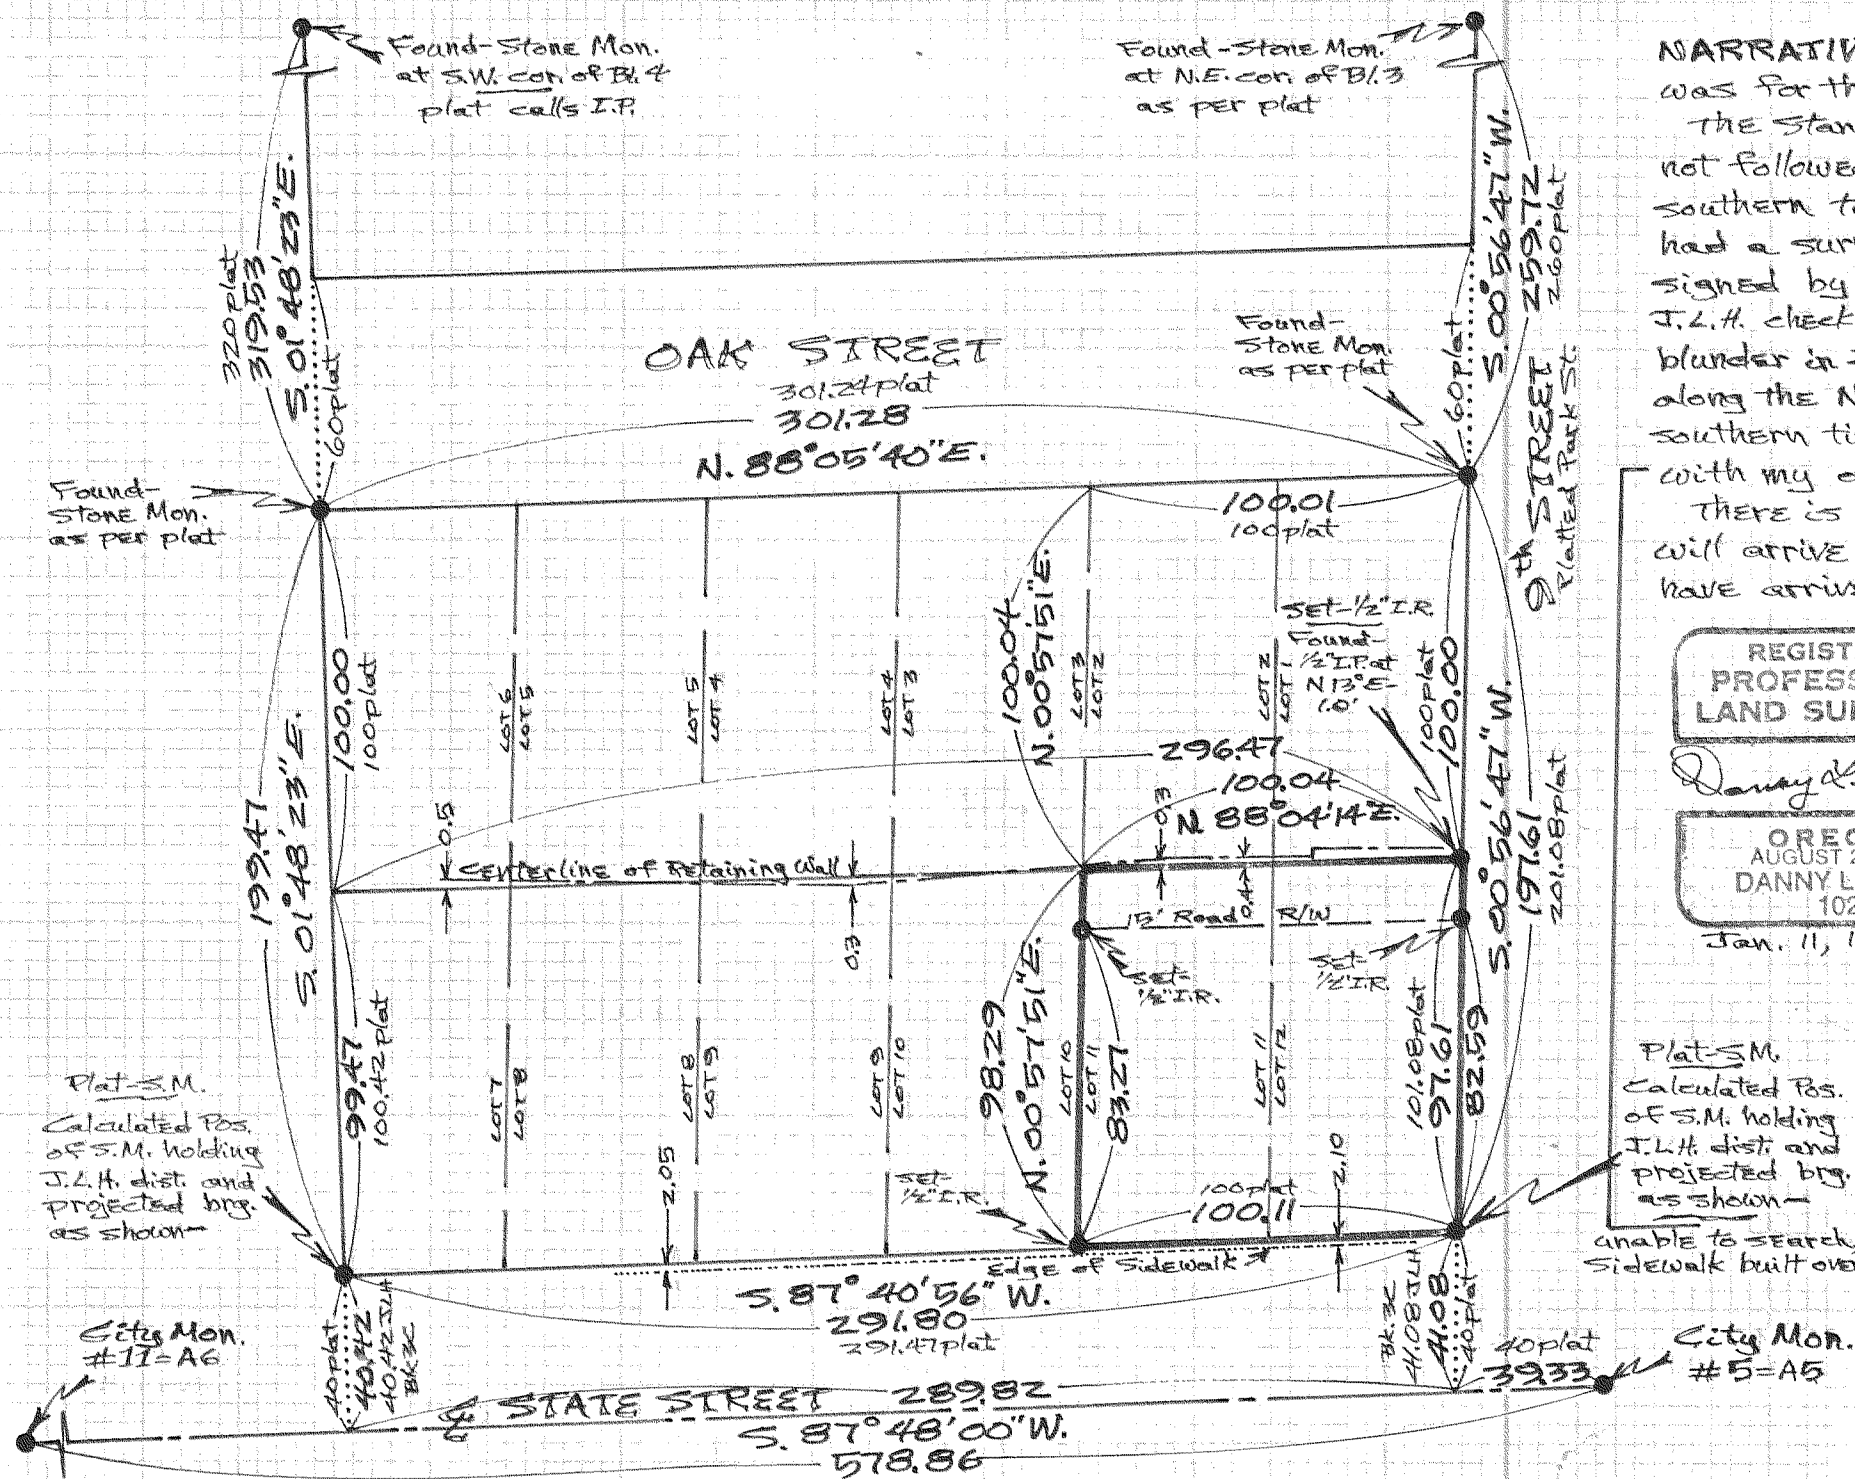 Found-Stone Mon.
at S.W. cor. of Bl. 4
plat calls I.P.
Found-Stone Mon.
at N.E. cor. of Bl. 3
as per plat
320 plat
319.53
S. 01° 48' 23" E.
60 plat
S. 00° 56' 47" W.
259.72
260 plat
60 plat
OAK STREET
301.24 plat
301.28
N. 88° 05' 40" E.
Found-
Stone Mon.
as per plat
Found-
Stone Mon.
as per plat
9th STREET
Platted Park St.
100.01
100 plat
199.47
S. 01° 48' 23" E.
100.00
100 plat
LOT 6
LOT 5
LOT 5
LOT 4
LOT 4
LOT 3
100.04
N. 00° 57' 51" E.
LOT 3
LOT 2
LOT 2
LOT 1
SET-1/2" I.R.
Found-
1/2" I.P. at
N 13° E-
1.0'
100 plat
100.00
S. 00° 56' 47" W.
197.61
201.08 plat
296.47
100.04
N. 88° 04' 14" E.
0.5
0.3
Centerline of Retaining Wall
0.3
0.4
15' Road R/W
SET-
1/2" I.R.
SET-
1/2" I.R.
99.47
100.42 plat
LOT 7
LOT 8
LOT 8
LOT 9
LOT 9
LOT 10
98.29
N. 00° 57' 51" E.
LOT 10
LOT 11
83.27
LOT 11
LOT 12
101.08 plat
97.61
82.59
Plat-S.M.
Calculated Pos.
of S.M. holding
J.L.H. dist. and
projected brg.
as shown-
2.05
SET-
1/2" I.R.
100 plat
100.11
2.10
Edge of Sidewalk
S. 87° 40' 56" W.
291.80
291.47 plat
Plat-S.M.
Calculated Pos.
of S.M. holding
J.L.H. dist. and
projected brg.
as shown-
unable to search,
Sidewalk built ove
City Mon.
#11=A6
40 plat
40.42
40.42 JLH
Bk. 3C
Bk. 3C
41.08 JLH
41.08
40 plat
40 plat
39.33
City Mon.
#5=A5
℄ STATE STREET 289.82
S. 87° 48' 00" W.
578.86
NARRATIV
was for th
The Stan
not followe
southern t
had a sur
signed by
J.L.H. check
blunder in
along the N
southern ti
with my o
There is
will arrive
have arriv
REGIST
PROFESS
LAND SU
Danny L.
OREG
AUGUST 2
DANNY L
102
Jan. 11, 1